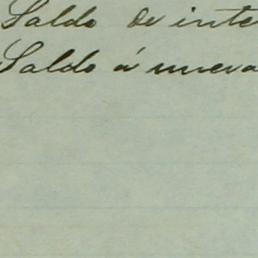 Saldo de inte
Saldo á nueva